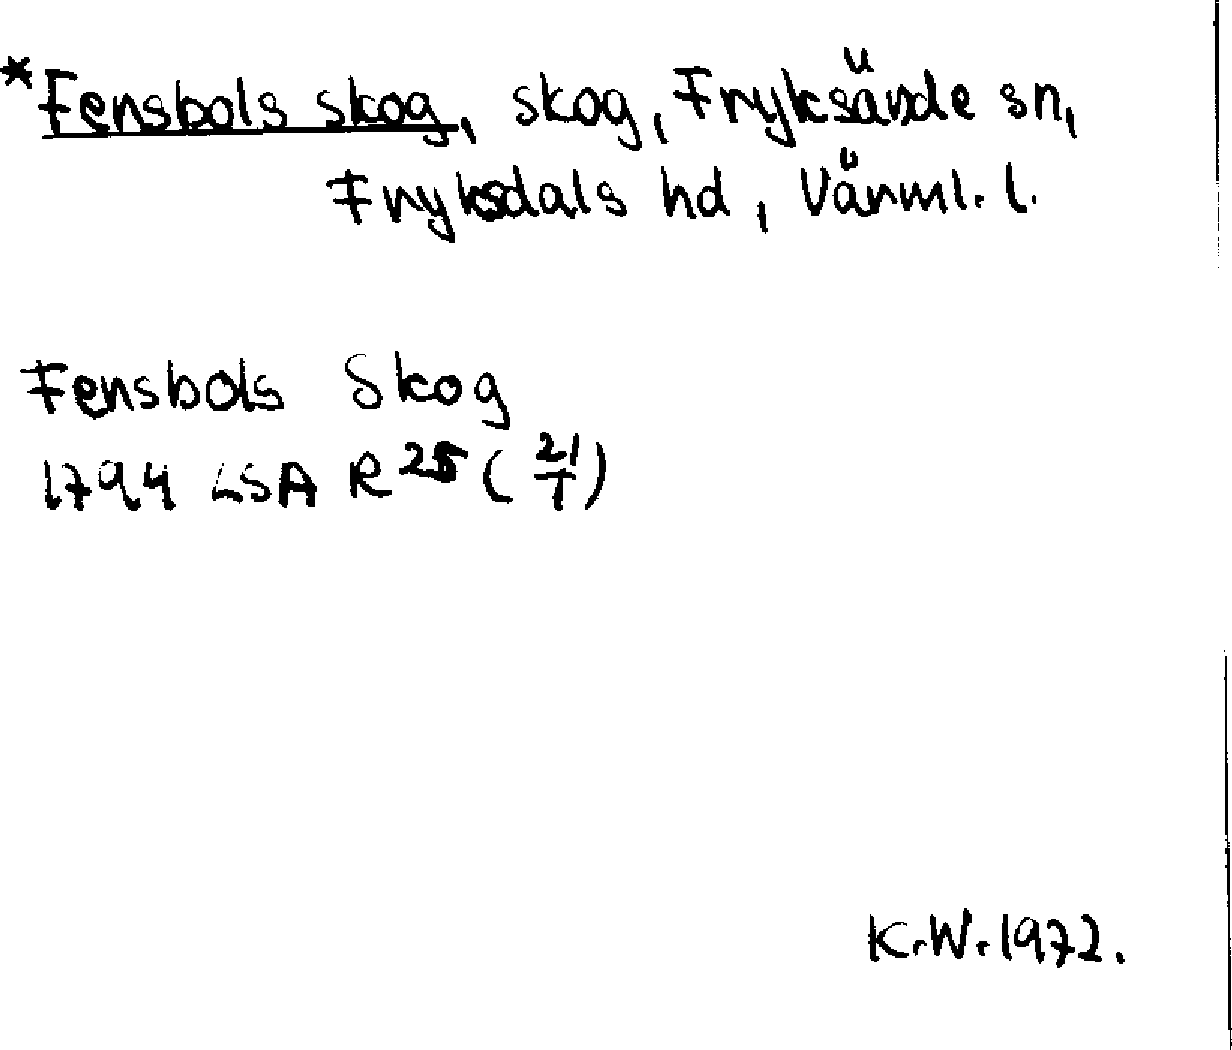 *Fensbols skog, skog, Fryksände sn,
Fryksdals hd, Värml. l.
Fensbols Skog
1794 LSA R 25 (21/1)
K.W. 1972.